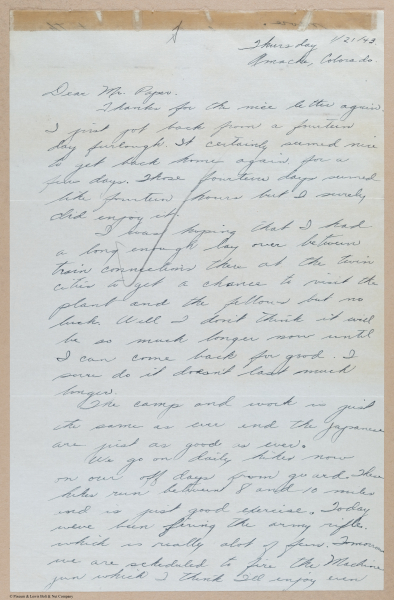 Thursday 1/21/43
Amache, Colorado
Dear Mr.
Thanks for the nice letter again.
I just got back from a fourteen
day furlough. It certainly seemed nice
to get back home again for a
few days. Those fourteen days seemed
like fourteen hours but I surely
did enjoy it.
I was hoping that I had
a long enough lay over between
train connections there at the twin
cities to get a chance to visit the
plant and the fellows but no
luck. Well I don't think it will
be so much longer now until
I can come back for good. I
sure do it doesn't last much
longer.
The camp and work is just
the same as ever and the Japanese
are just as good as ever.
We go on daily hikes now
on our off days from guard. These
hikes run between 8 and 10 miles
and is just good exercise. Today
weve been firing the army rifle.
which is really alot of fun. Tomorrow
we are scheduled to fire the Machine
gun which I think I'll enjoy even